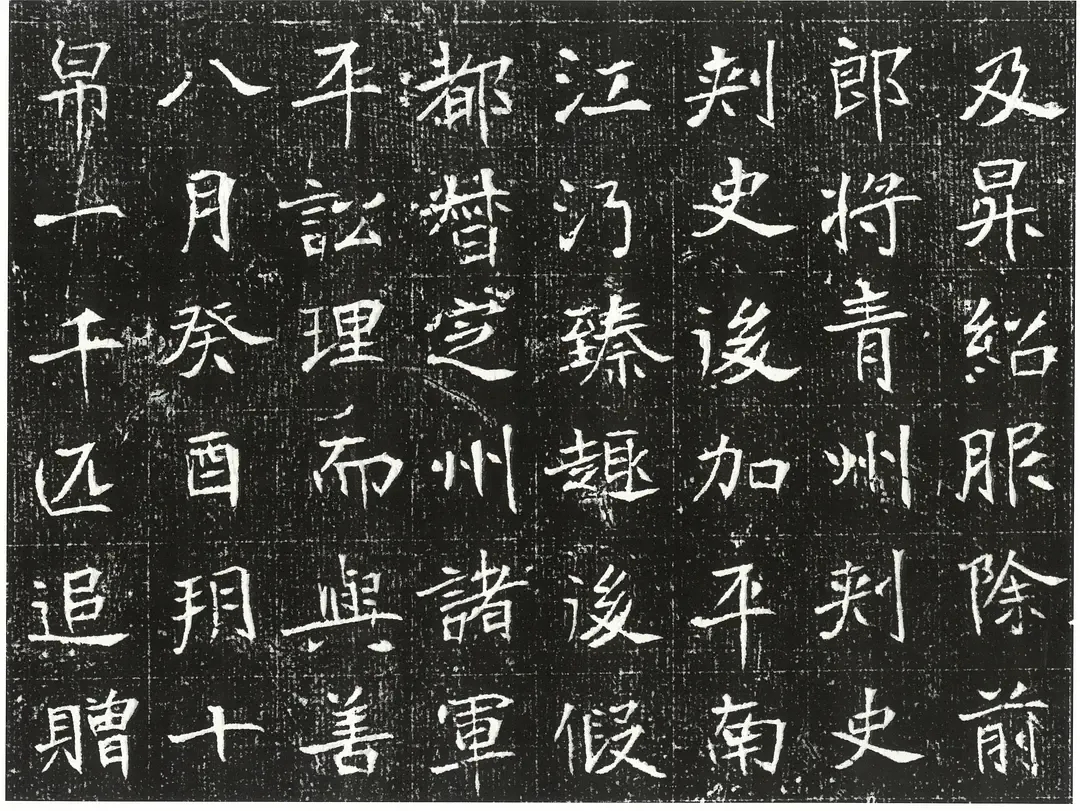 及昇紹服除前
郎將青州刾史
刾史後加平南
江沔臻趣後假
都督州諸軍
平訟理而與善
八月癸酉朔十
帛一千匹追贈